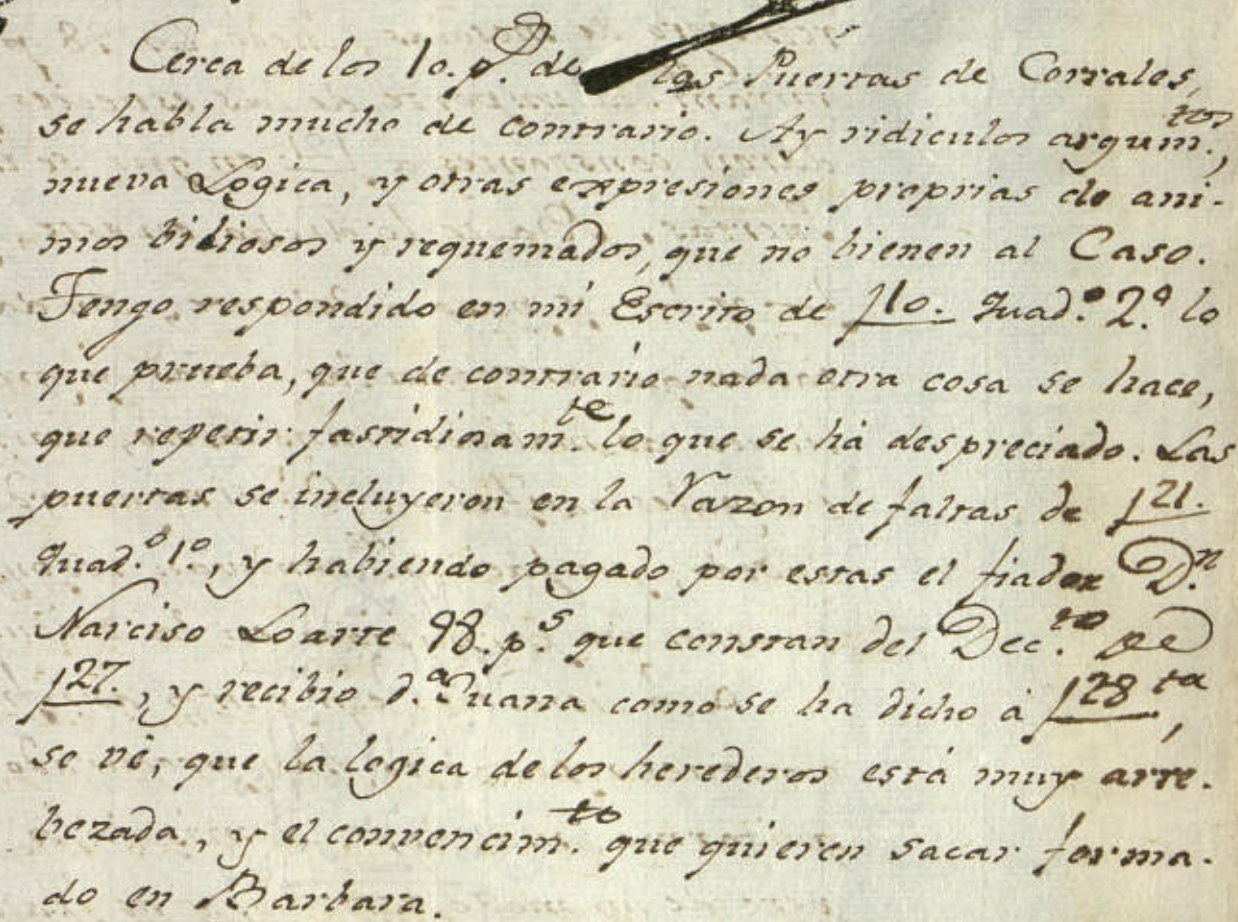 Cerca de los 10. p.s de las Puertas de Corrales,
se habla mucho de contrario. Ay ridiculos argum.tos,
nueva Logica, y otras expresiones proprias de ani-
mos biliosos y requemados, que no bienen al Caso.
Tengo respondido en mi Escrito de f10. Quad.o 2.o lo
que prueba, que de contrario nada otra cosa se hace,
que repetir fastidiosam.te lo que se há despreciado. Las
puertas se incluyeron en la Razon de faltas de f21.
Quad.o 1.o, y habiendo pagado por estas el fiador D.n
Narciso Loarte 98. p.s que constan del Dec.to de
f27., y recibio d.a Juana como se ha dicho á f28 ta,
se vé, que la logica de los herederos está muy arre-
bezada, y el convencim.to que quieren sacar forma-
do en Barbara.